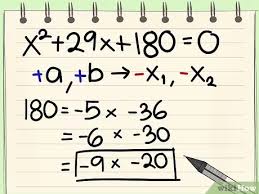 x²+29x+180=0
+a, +b → -x₁, -x₂
180=-5 x -36
=-6 x -30
=-9 x -20
wikiHow